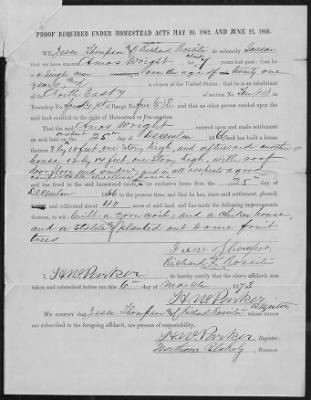 PROOF REQUIRED UNDER HOMESTEAD ACTS MAY 20, 1862, AND JUNE 21, 1866.
We, Jesse Thompson & Richard do solemnly
that we have known Amos Wright for years last past; that he is
a single man over the age of twenty one
years and a citizen of the United States; that he is an inhabitant
of the North East of section No.
Township No. of Range No. and that no other person resided upon the said land
entitled to the right of Homestead or Pre-emption
That the said Amos Wright entered upon and made settlement
on said land on the 25 day of December, 18 and has built a house
thereon 8 by 10 feet, one story high, and afterward another
house, by 14 feet one story high, with roof
door floor and window and in all respects a good
comfortable dwelling house
and has lived in the said house and made it his exclusive home from the 25 day of
December to the present time, and that he has, since said settlement, plowed, fenced,
and cultivated about 40 acres of said land, and has made the following improvements
thereon, to wit: built a corn crib, and a chicken house,
and a stable & planted out some fruit
trees
Jesse Thompson
Richard
I, H. W. Parker do hereby certify that the above affidavit was
taken and subscribed before me this 6th day of March 1873
H. W. Parker
Register
We certify that Jesse Thompson & Richard whose names
are subscribed to the foregoing affidavit, are persons of respectability.
H. W. Parker, Register.
Receiver.